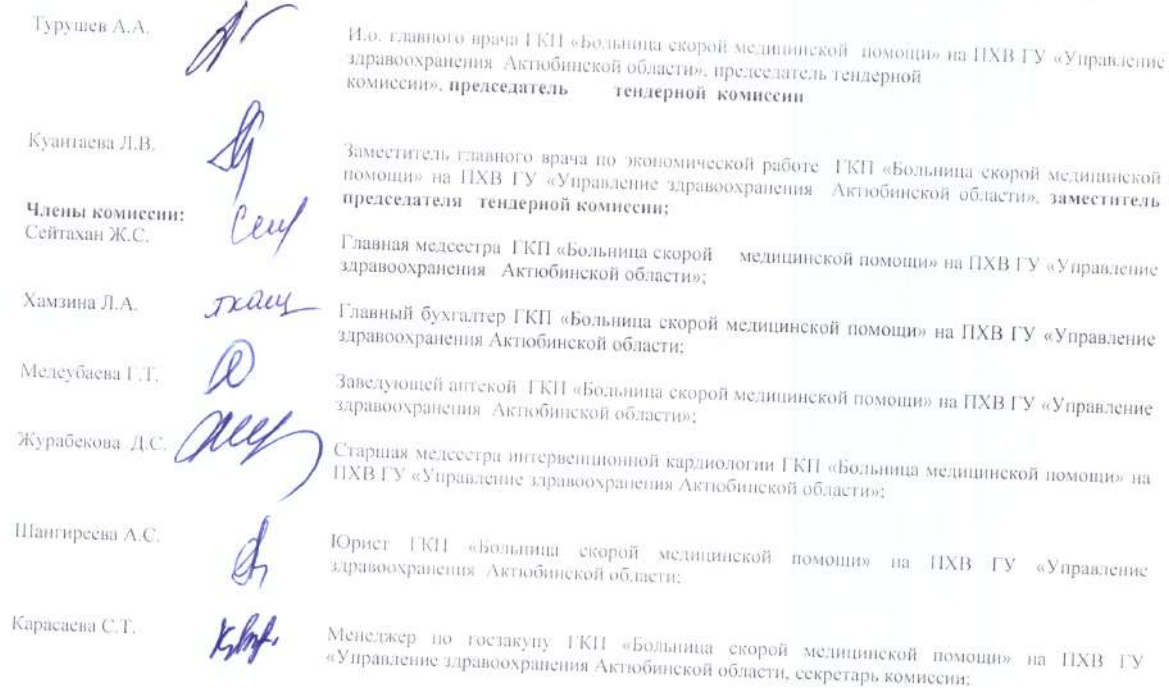 Турушев А.А.
И.о. главного врача ГКП «Больница скорой медицинской помощи» на ПХВ ГУ «Управление
здравоохранения Актюбинской области», председатель тендерной
комиссии», председатель тендерной комиссии
Куантаева Л.В.
Заместитель главного врача по экономической работе ГКП «Больница скорой медицинской
помощи» на ПХВ ГУ «Управление здравоохранения Актюбинской области», заместитель
председателя тендерной комиссии;
Члены комиссии:
Сейтахан Ж.С.
Главная медсестра ГКП «Больница скорой медицинской помощи» на ПХВ ГУ «Управление
здравоохранения Актюбинской области»;
Хамзина Л.А.
Главный бухгалтер ГКП «Больница скорой медицинской помощи» на ПХВ ГУ «Управление
здравоохранения Актюбинской области;
Медеубаева Г.Т.
Заведующей аптекой ГКП «Больница скорой медицинской помощи» на ПХВ ГУ «Управление
здравоохранения Актюбинской области»;
Журабекова Д.С.
Старшая медсестра интервенционной кардиологии ГКП «Больница медицинской помощи» на
ПХВ ГУ «Управление здравоохранения Актюбинской области»;
Шангиреева А.С.
Юрист ГКП «Больница скорой медицинской помощи» на ПХВ ГУ «Управление
здравоохранения Актюбинской области;
Карасаева С.Т.
Менеджер по госзакупу ГКП «Больница скорой медицинской помощи» на ПХВ ГУ
«Управление здравоохранения Актюбинской области, секретарь комиссии;